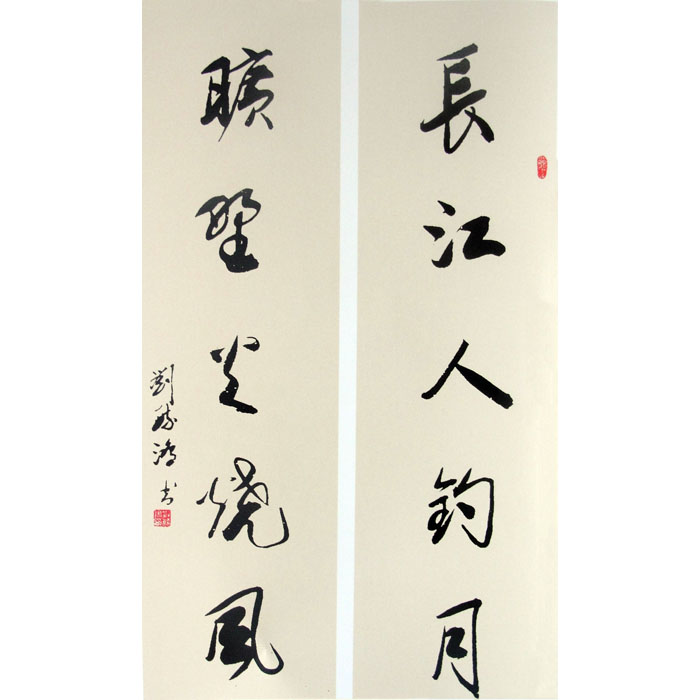 長江人釣月
曠野火燒風
劉鴻書